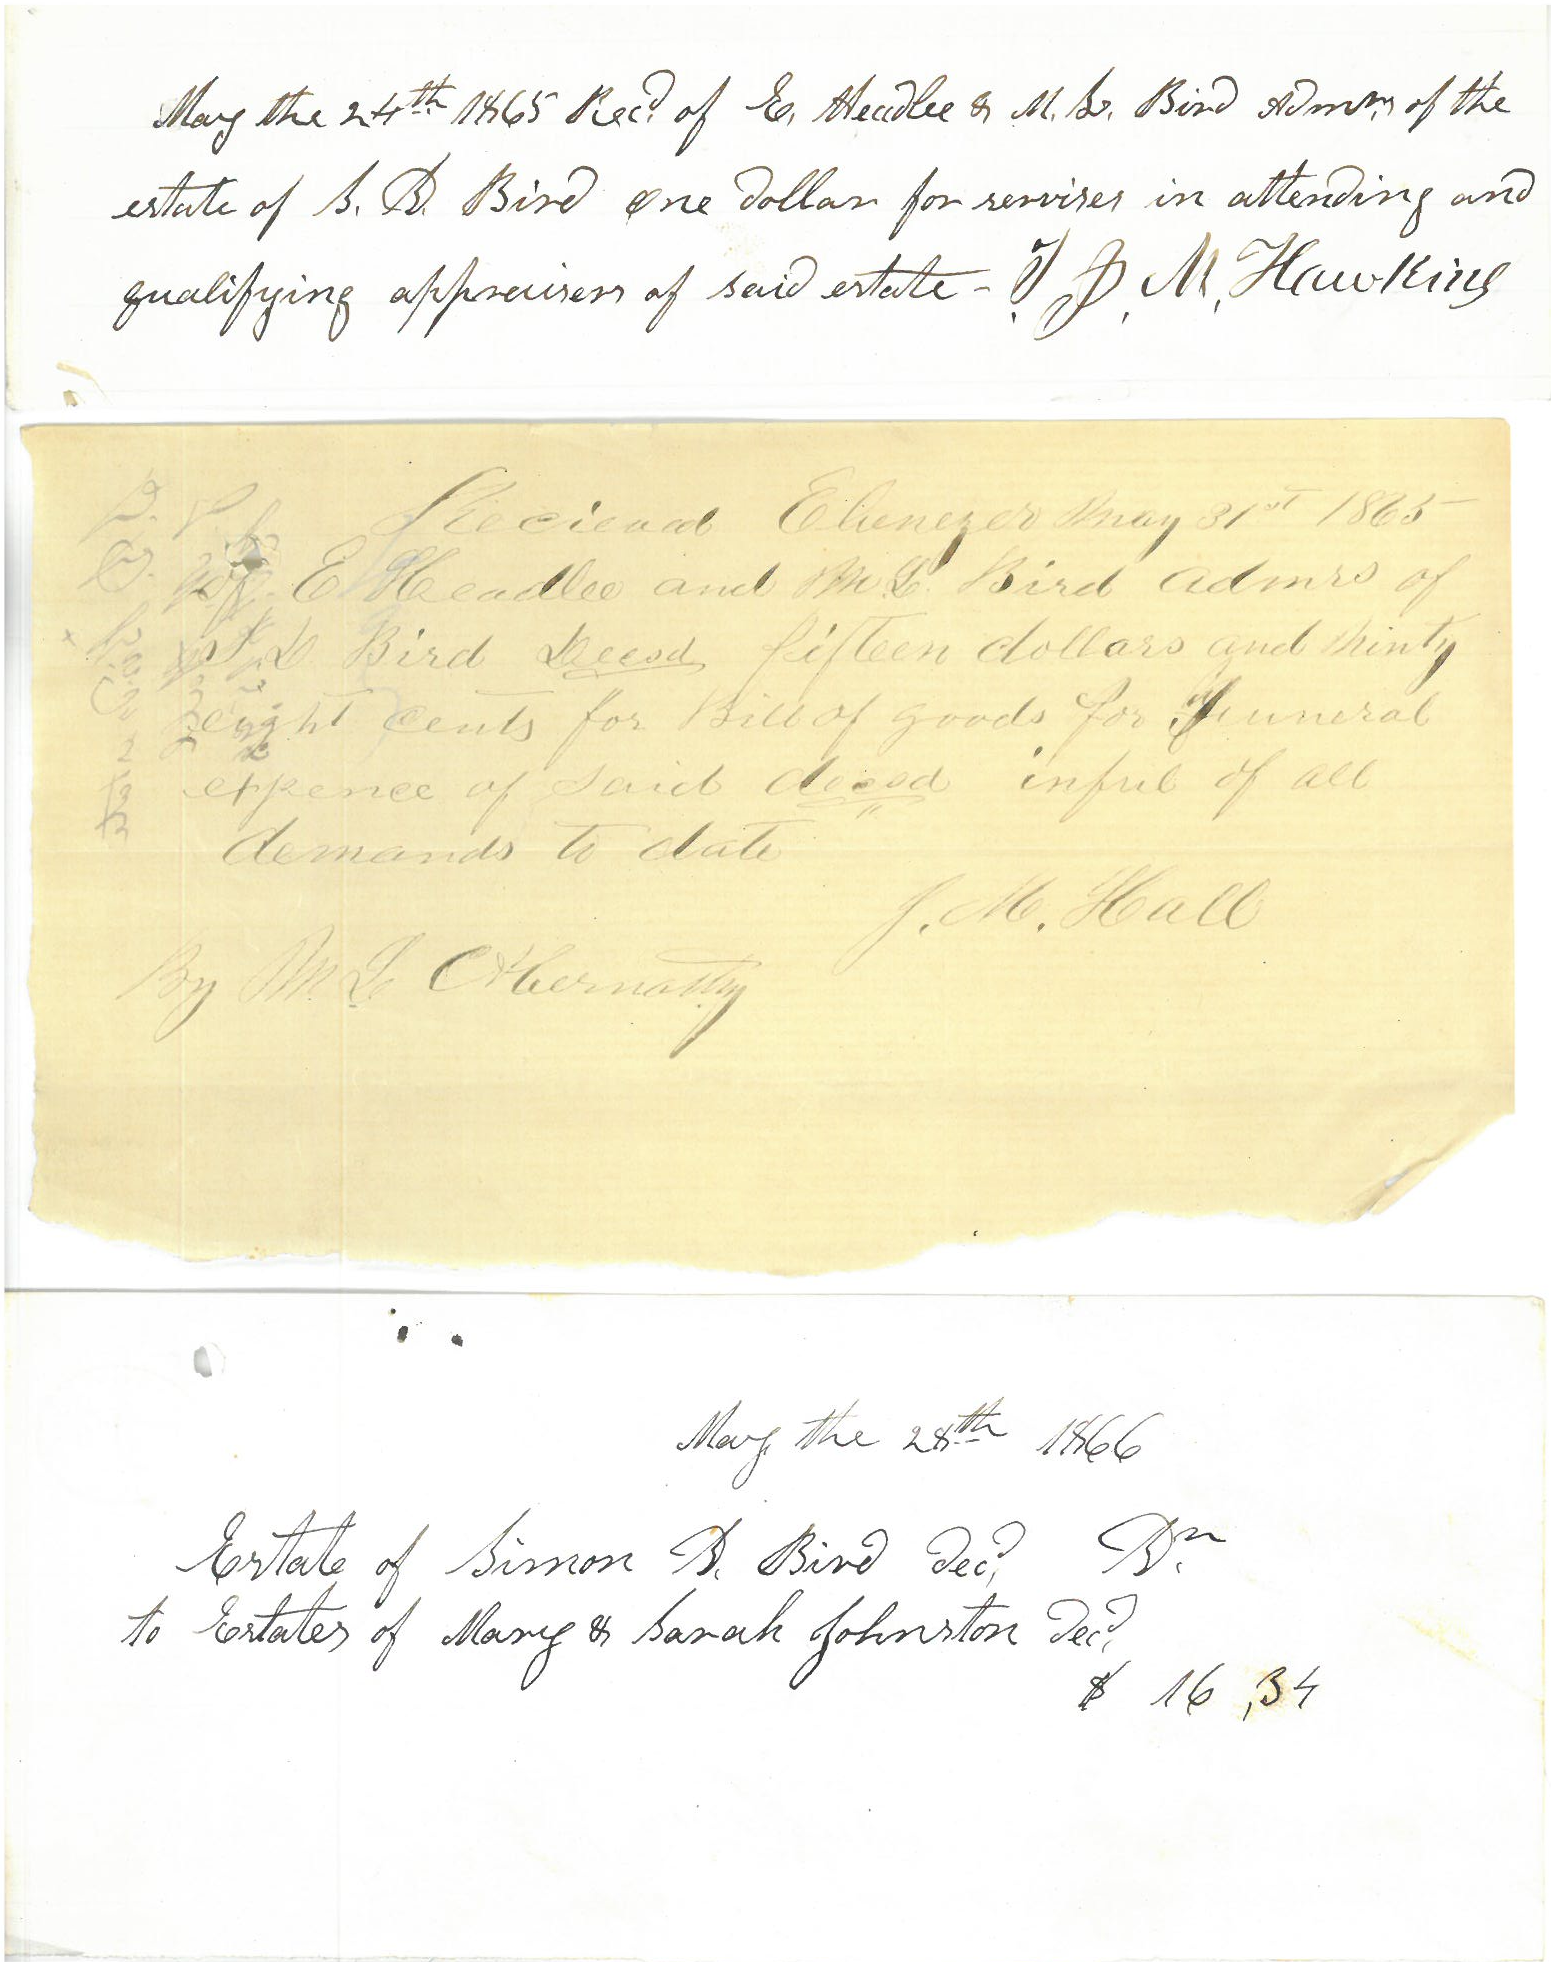 May the 24th 1865 Recd. of E. Headlee & M. L. Bird Admrs of the
estate of S. D. Bird one dollar for servises in attending and
qualifying appraisers of said estate - T. J. M. Hawkins
Recieved Ebenezer May 31st 1865
of E Headlee and M L. Bird admrs of
S D Bird Decesd fifteen dollars and Ninty
eight cents for Bill of goods for funeral
expence of said decesd infull of all
demands to date
J. M. Hall
By M L Abernathy
May the 28th 1866
Estate of Simon D. Bird decd, Dr.
to Estates of Mary & Sarah Johnston decd.
$ 16,34